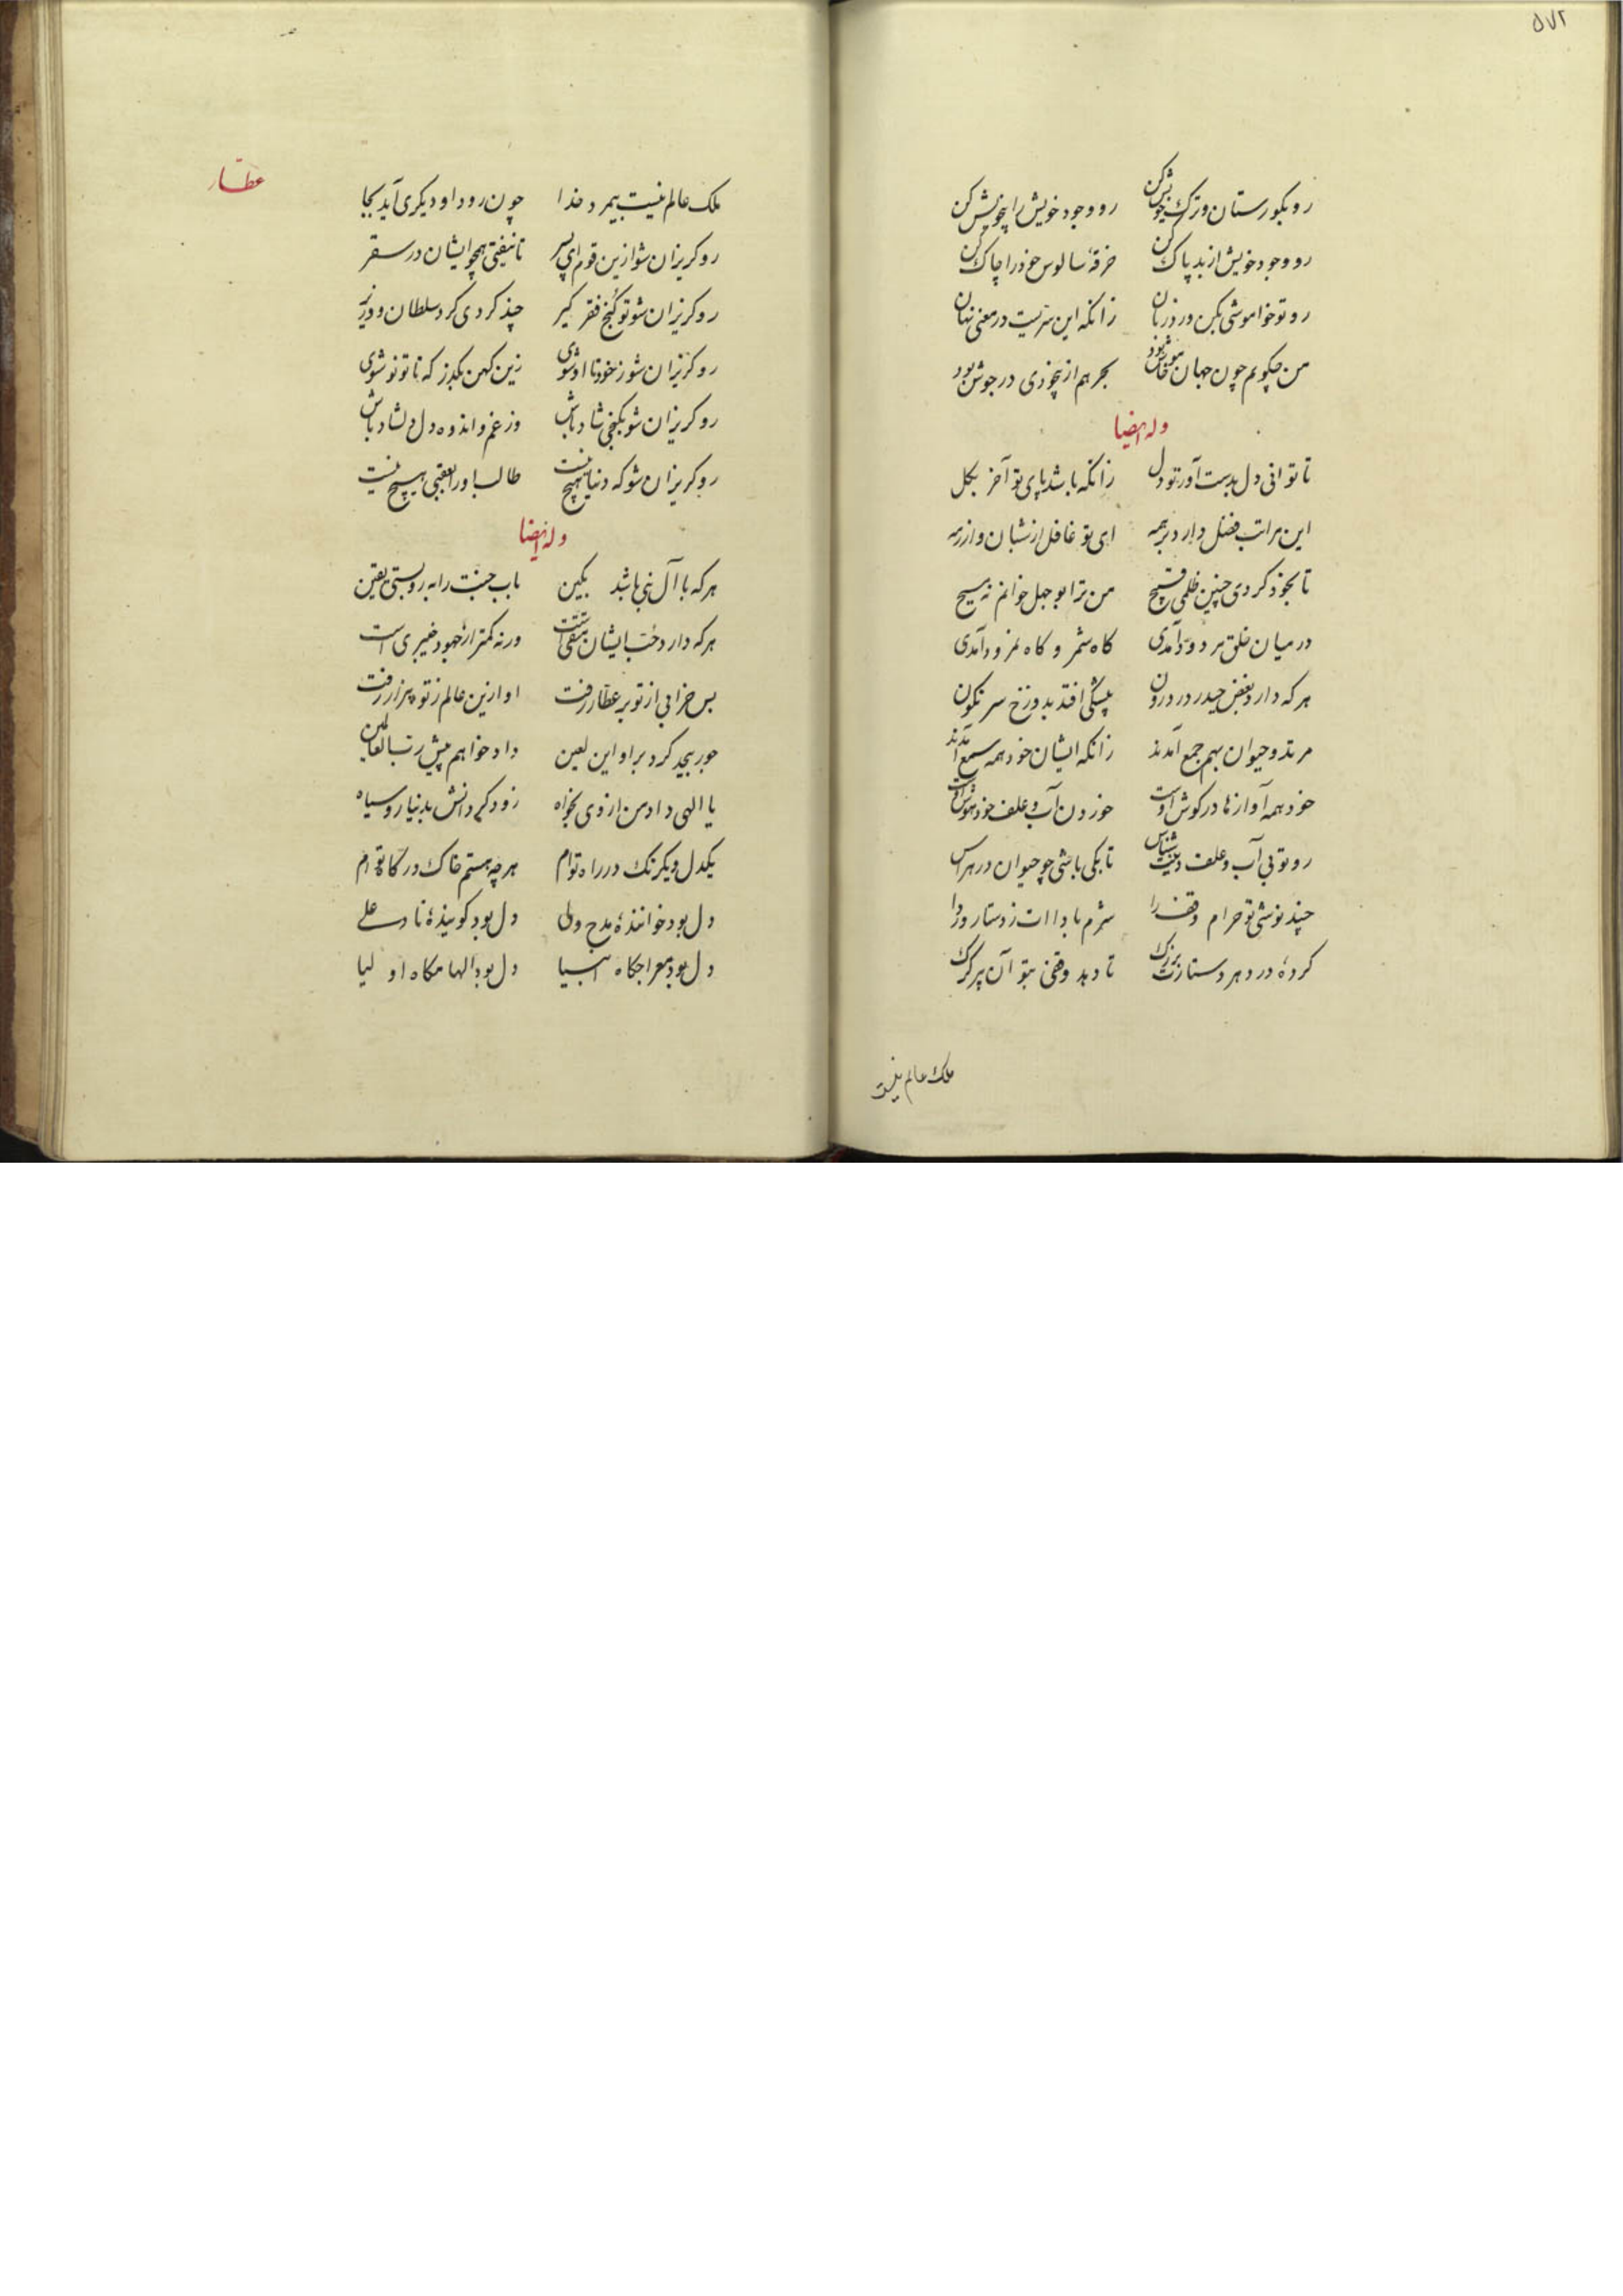 ۵۷۲
رو بکورستان و ترک جوش کن رو وجود خویش را چون پش کن
رو وجود خویش از بد پاک کن خرقهٔ سالوس خود را چاک کن
رو تو خواموشی بکن ورد زبان زانکه این سریست در معنی نهان
من چکویم چون جهان خاموش بود بحر هم از بیخودی در جوش بود
وله ایضا
تا توانی دل بدست آور تو دل زانکه باشد پای تو آخر بکل
این مراتب فضل دارد بر همه ای تو غافل از شبان و از رمه
تا بخود کردی چنین ظلمی قبیح من ترا بو جهل خوانم نه مسیح
در میان خلق مردود آمدی کاه شمر و کاه نمرود آمدی
هر که دارد بغض حیدر در درون بیشکی افتد بدوزخ سرنکون
مرتد و حیوان بهم جمع آمدند زانکه ایشان خود همه سمع آمدند
خود همه آوازها در کوش اوست خوردن آب و علف خود هوش اوست
رو تو بی آب و علف دینت شناس تا بکی باشی چو حیوان در هراس
چند نوشی تو حرام وقف را شرم بادا ات ز دستار و ردا
کردهٔ در دهر دستارت بزرک تا دهد وقفی بتو آن پیر کرک
ملک عالم نیست
عطار
ملک عالم نیست بیمرد خدا چون رود او دیکری آید بجا
رو کریزان شو ازین قوم ای پسر تا نیفتی همچو ایشان در سقر
رو کریزان شو تو کنج فقر کیر چند کردی کرد سلطان و وزیر
رو کریزان شو ز خود تا او شوی زین کهن بکذر که تا تو نو شوی
رو کریزان شو بکنجی شاد باش وز غم و اندوه دل دلشاد باش
رو کریزان شو که دنیا نیست هیچ طالب او را بعقبی هیچ نیست
وله ایضا
هر که با آل نبی باشد بکین باب جنت را برو بستی یقین
هر که دارد حب ایشان متقی است ورنه کمتر از جهود خیبری است
بس خرابی از تو بر عطار رفت او ازین عالم ز تو بیزار رفت
جور بیحد کرد بر او این لعین داد خواهم پیش رب العالمین
یا الهی داد من از وی بخواه زود کردانش بدنیا رو سیاه
یکدل و یکرنک در راه توام هر چه هستم خاک درکاه توام
دل بود خوانندهٔ مدح ولی دل بود کویندهٔ ناد علی
دل بود معراجکاه انبیا دل بود الهامکاه اولیا